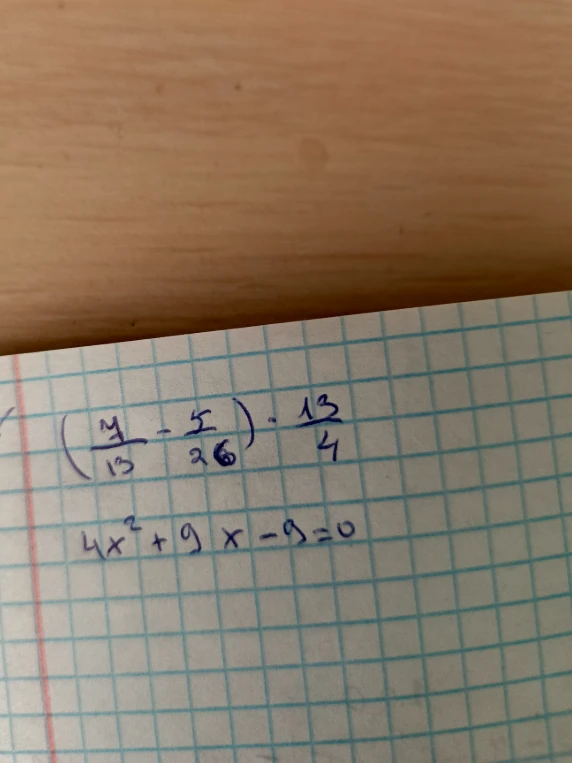 (7/13 - 5/26) · 13/4
4x² + 9x - 9 = 0